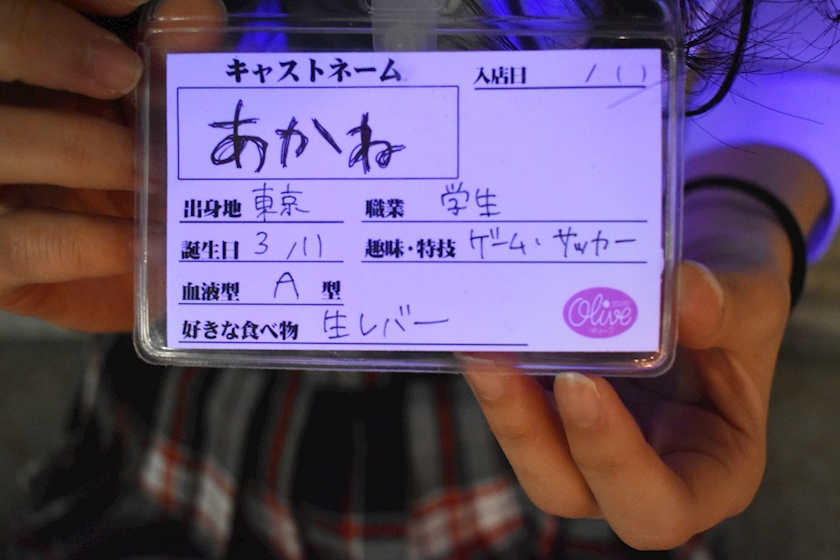 キャストネーム 入店日 / ( )
あかね
出身地 東京 職業 学生
誕生日 3/11 趣味・特技 ゲーム・サッカー
血液型 A 型
好きな食べ物 生レバー
Olive
オリーブ